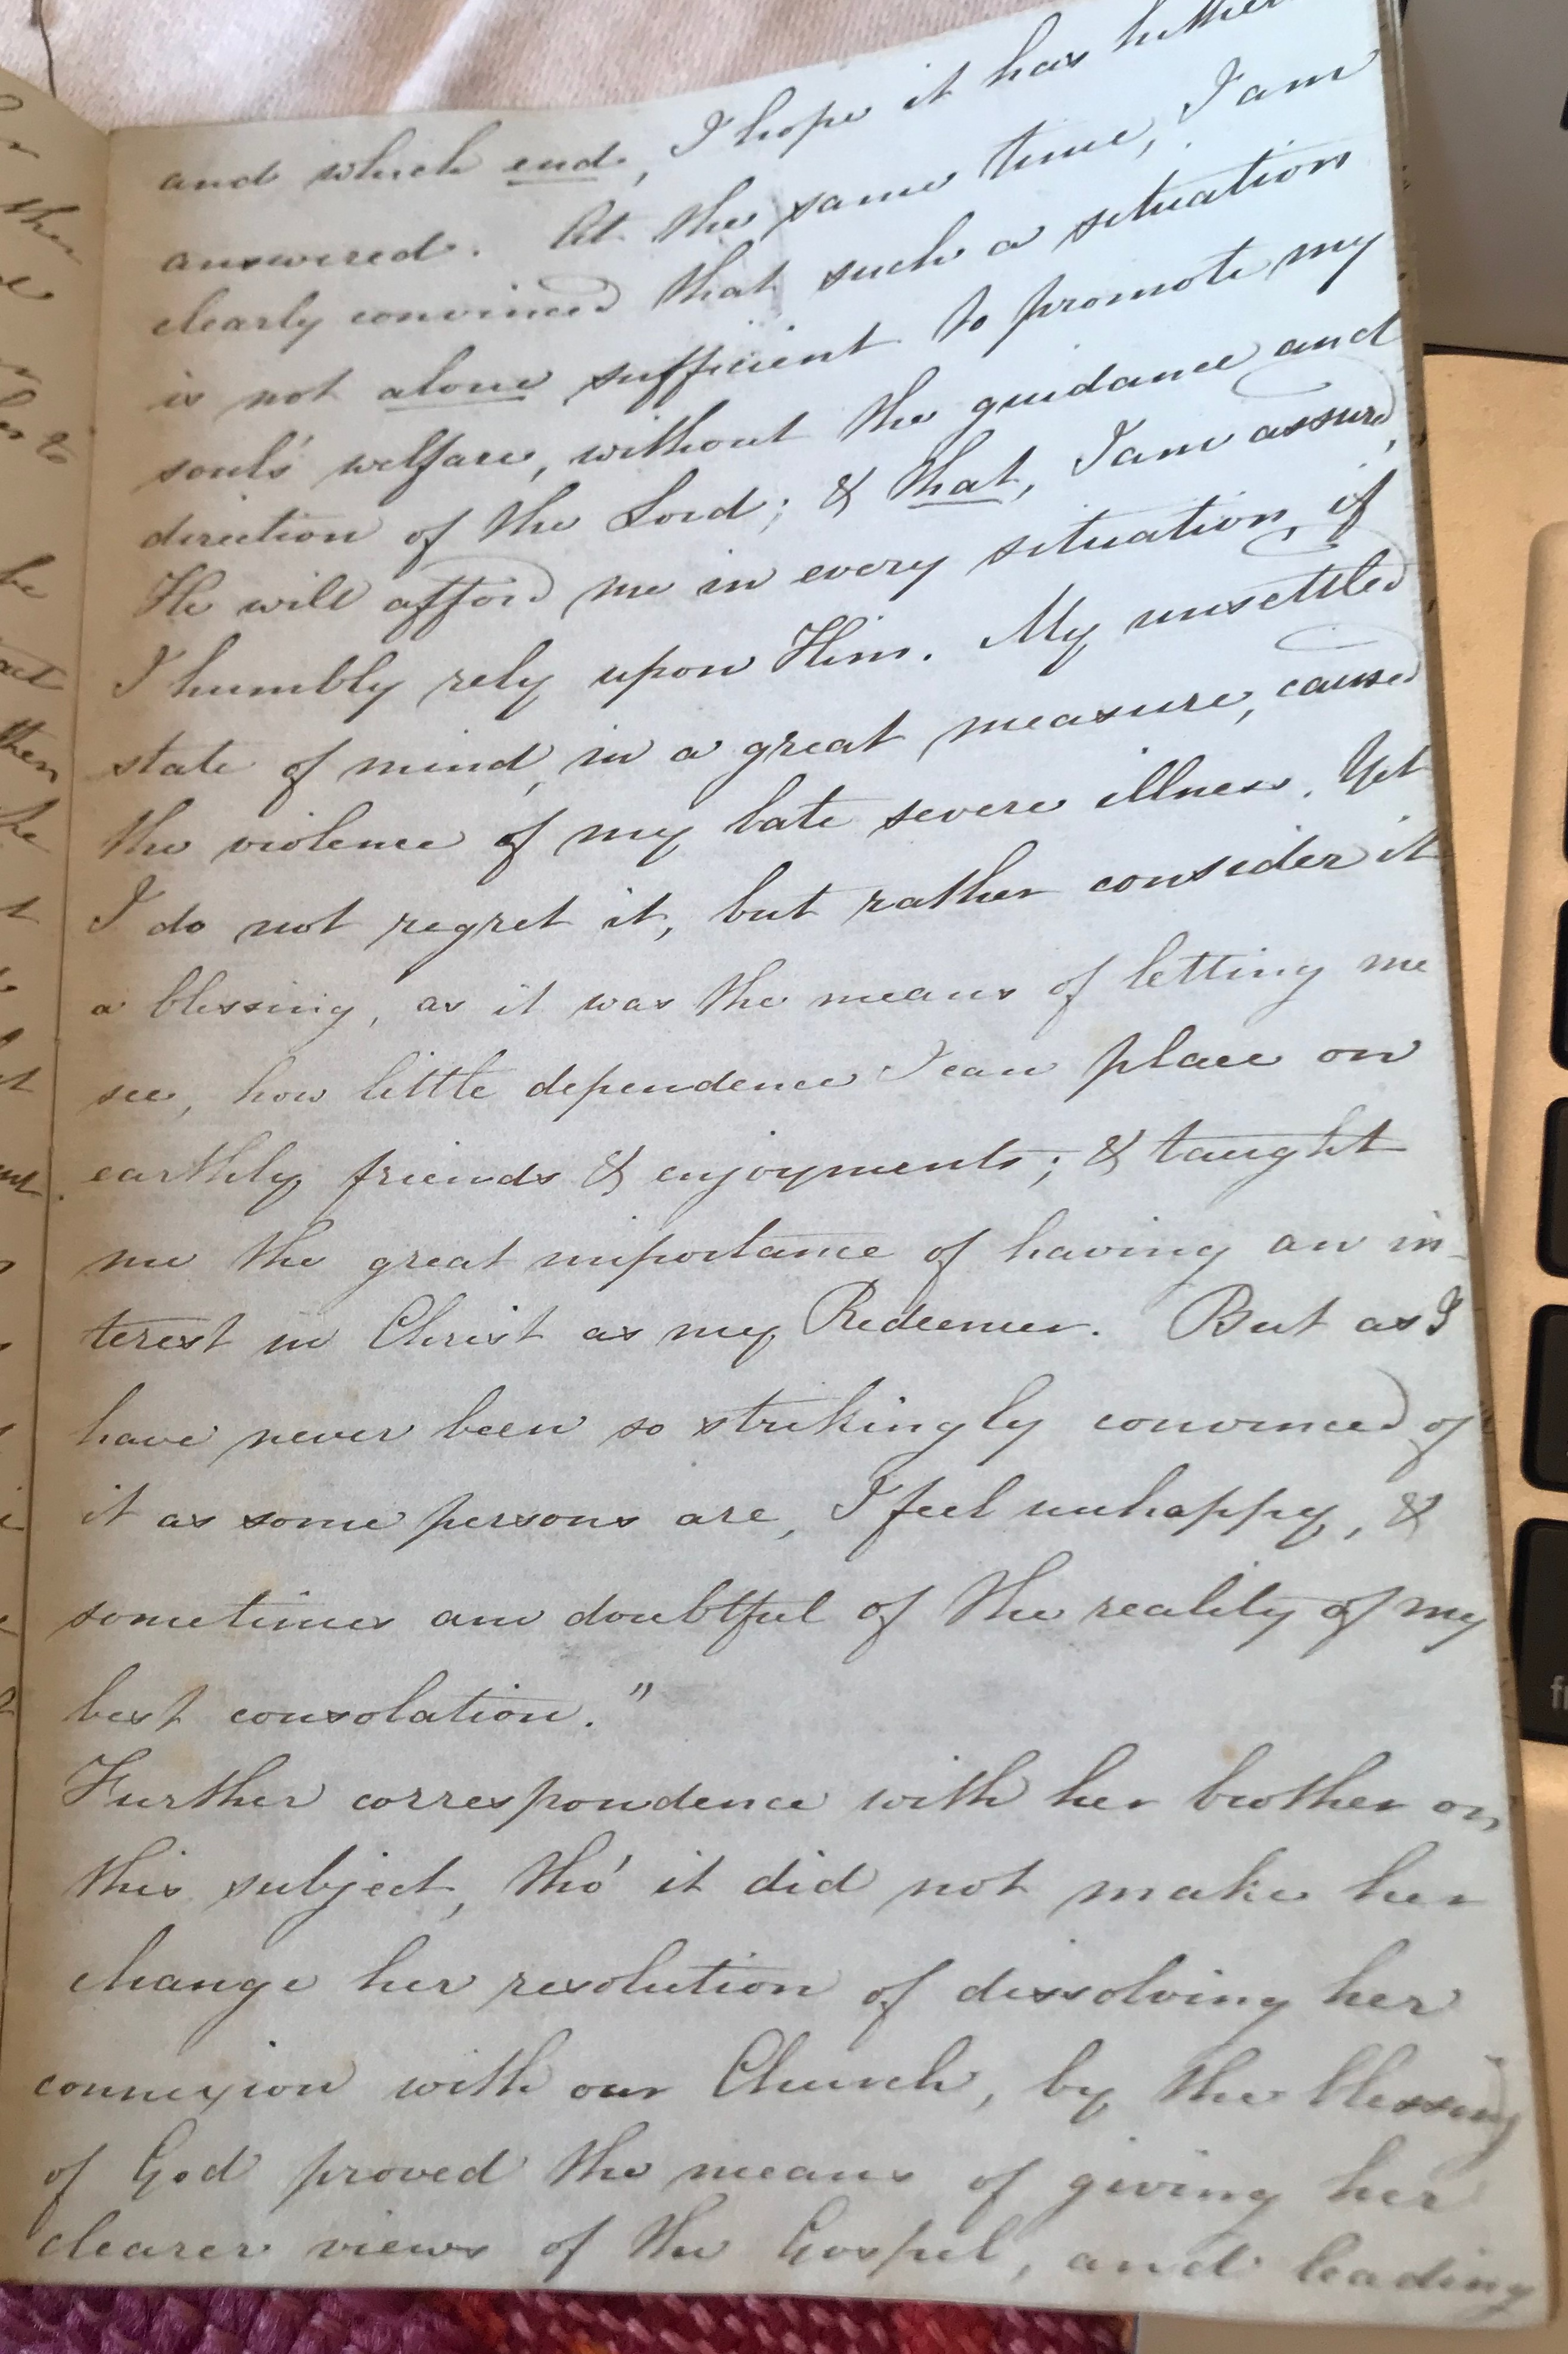 and which end, I hope it has
answered. At the same time, I am
clearly convinced that such a situation
is not alone sufficient to promote my
soul's welfare, without the guidance and
direction of the Lord; & that, I am assured,
He will afford me in every situation, if
I humbly rely upon Him. My unsettled
state of mind, in a great measure, caused
the violence of my late severe illness. Yet
I do not regret it, but rather consider it
a blessing, as it was the means of letting me
see, how little dependence I can place on
earthly friends & enjoyments; & taught
me the great importance of having an in-
terest in Christ as my Redeemer. But as I
have never been so strikingly convinced of
it as some persons are, I feel unhappy, &
sometimes am doubtful of the reality of my
best consolation."
Further correspondence with her brother on
this subject, tho' it did not make her
change her resolution of dissolving her
connexion with our Church, by the blessing
of God proved the means of giving her
clearer views of the Gospel, and leading